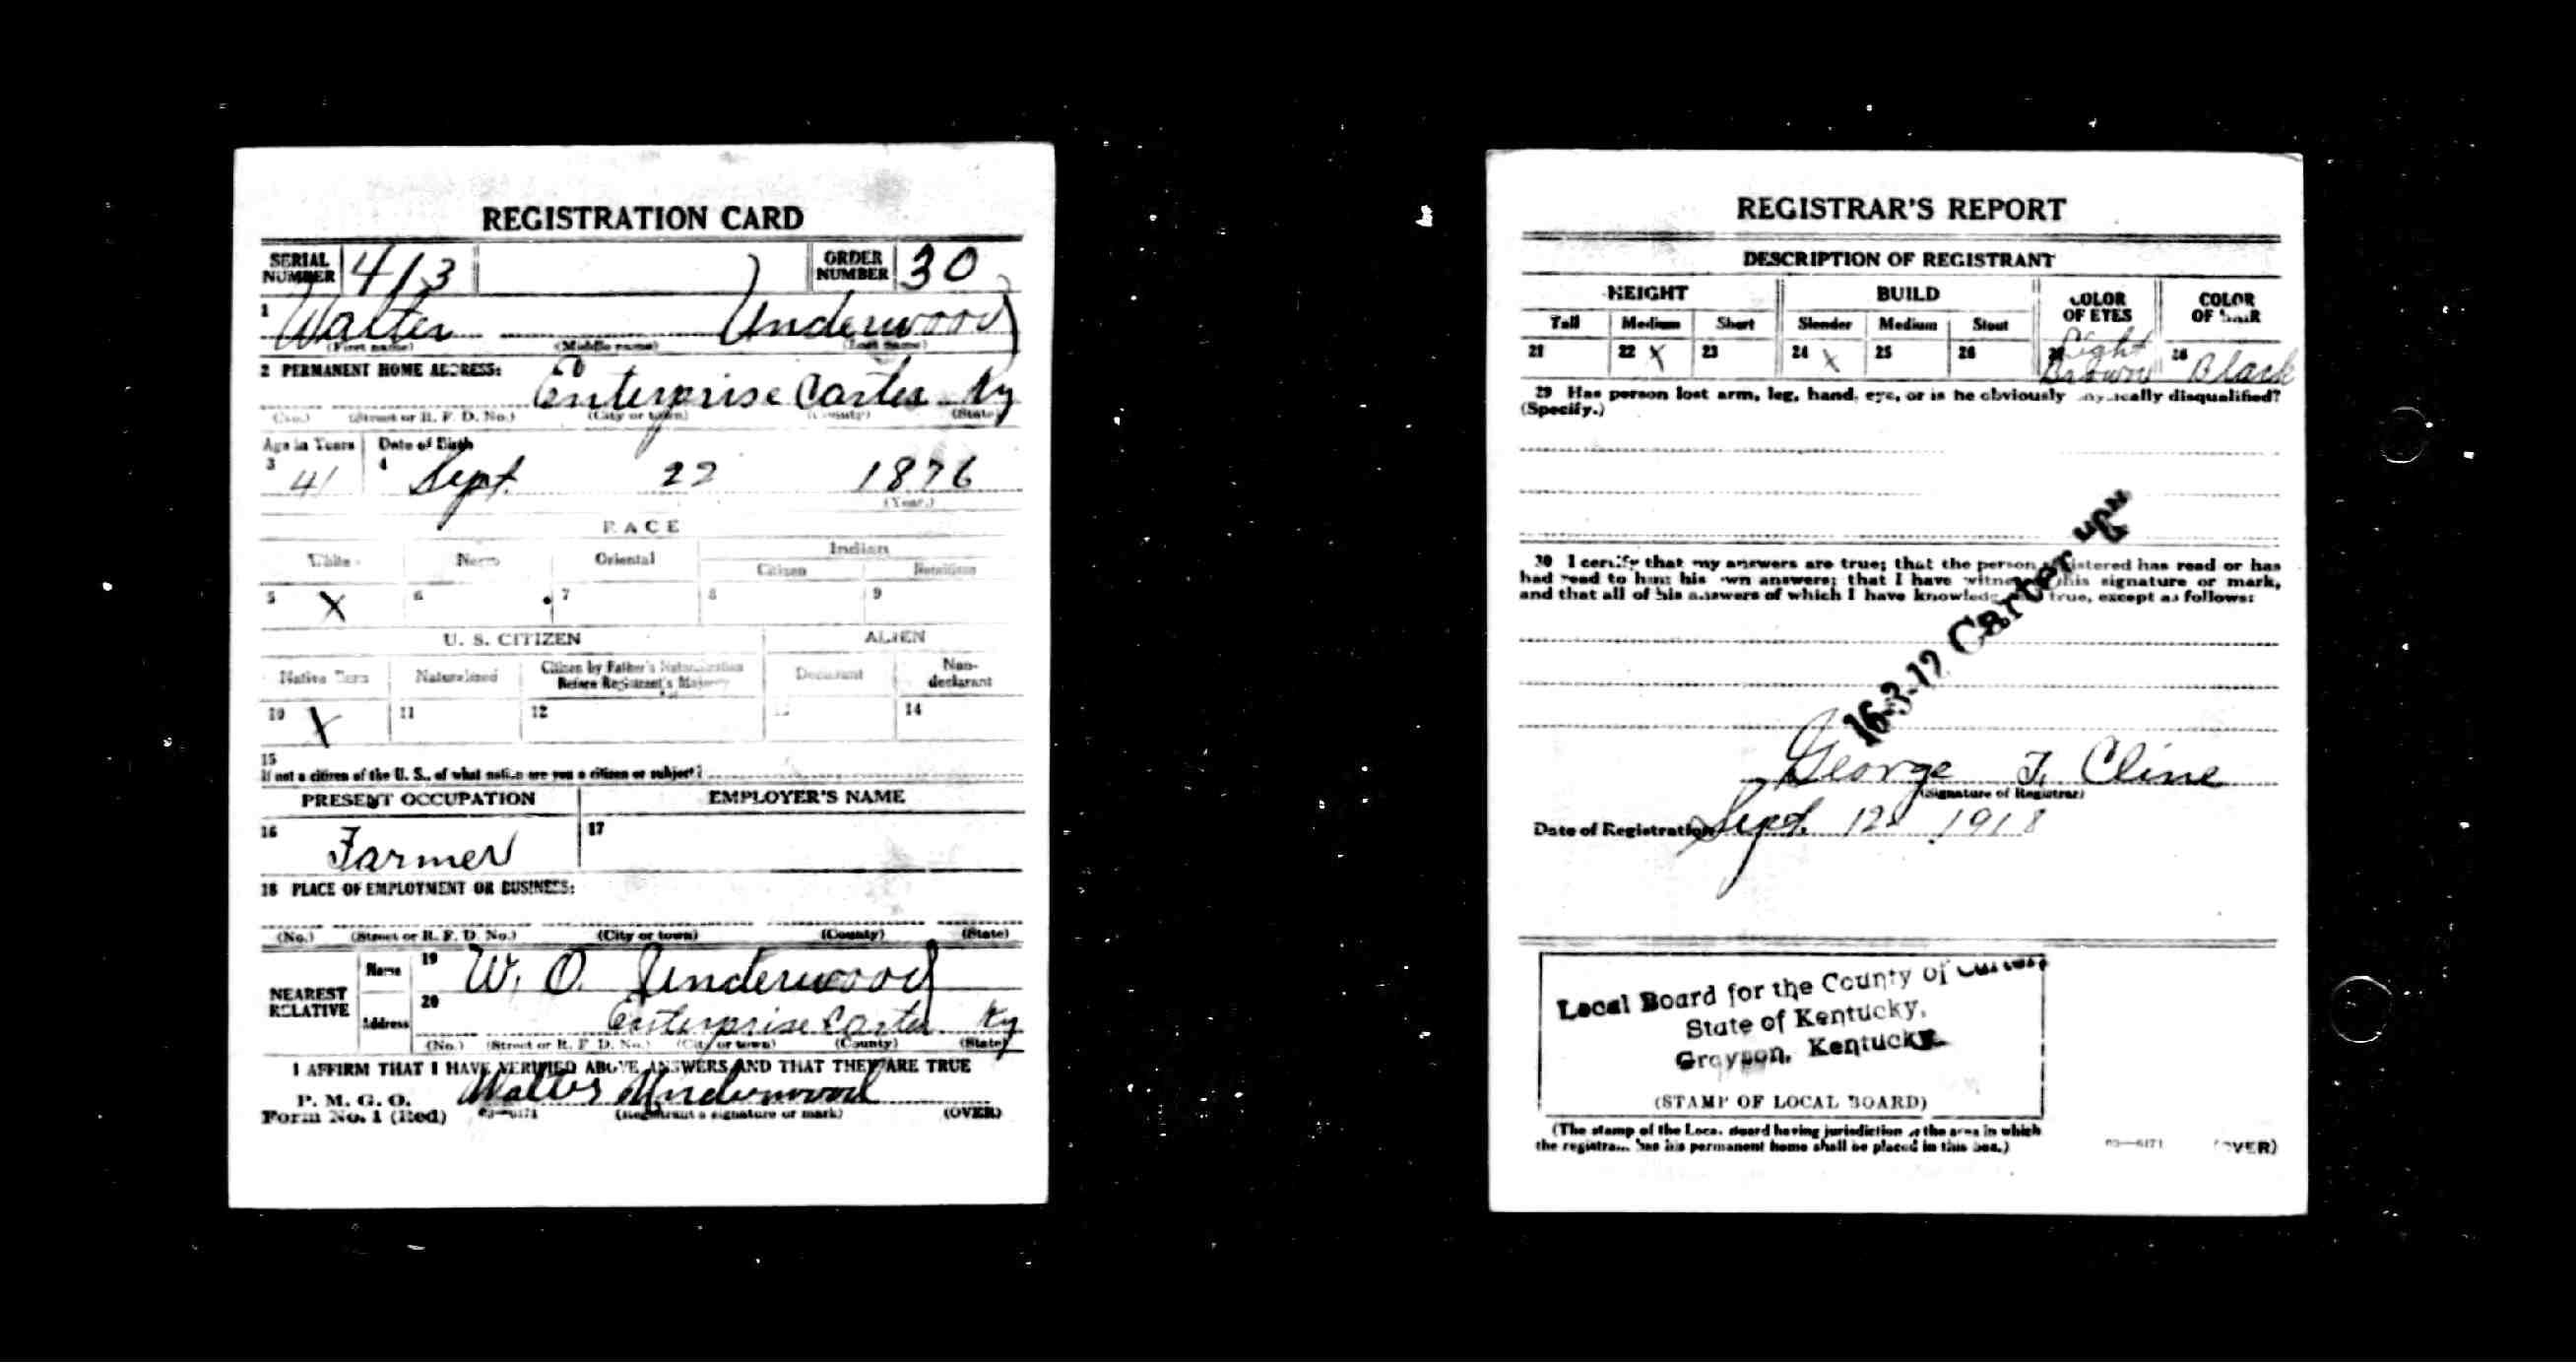 REGISTRATION CARD
SERIAL NUMBER 413 ORDER NUMBER 30
1 Walter Underwood
(First name) (Middle name) (Last name)
2 PERMANENT HOME ADDRESS: Enterprise Carter Ky
(No.) (Street or R. F. D. No.) (City or town) (County) (State)
Age in Years Date of Birth
3 41 4 Sept. 22 1876
(Year.)
RACE
White Negro Oriental Indian
Citizen Noncitizen
5 X 6 7 8 9
U. S. CITIZEN ALIEN
Native Born Naturalized Citizen by Father's Naturalization Before Registrant's Majority Declarant Non-declarant
10 X 11 12 14
15
If not a citizen of the U. S., of what nation are you a citizen or subject?
PRESENT OCCUPATION EMPLOYER'S NAME
16 Farmer 17
18 PLACE OF EMPLOYMENT OR BUSINESS:
(No.) (Street or R. F. D. No.) (City or town) (County) (State)
NEAREST RELATIVE Name 19 W. O. Underwood
Address 20 Enterprise Carter Ky
(No.) (Street or R. F. D. No.) (City or town) (County) (State)
I AFFIRM THAT I HAVE VERIFIED ABOVE ANSWERS AND THAT THEY ARE TRUE
P. M. G. O. Walter Underwood
Form No. 1 (Red) 03—6171 (Registrant's signature or mark) (OVER)
REGISTRAR'S REPORT
DESCRIPTION OF REGISTRANT
HEIGHT BUILD COLOR OF EYES COLOR OF HAIR
Tall Medium Short Slender Medium Stout
21 22 X 23 24 X 25 26 Light Brown 28 Black
29 Has person lost arm, leg, hand, eye, or is he obviously physically disqualified?
(Specify.)
30 I certify that my answers are true; that the person registered has read or has
had read to him his own answers; that I have witnessed his signature or mark,
and that all of his answers of which I have knowledge are true, except as follows:
16-3-12 Carter
George T. Cline
(Signature of Registrar)
Date of Registration Sept. 12 1918
Local Board for the County of Carter,
State of Kentucky,
Grayson, Kentucky.
(STAMP OF LOCAL BOARD)
(The stamp of the Local Board having jurisdiction of the area in which
the registrant has his permanent home shall be placed in this box.)
03—6171 (OVER)